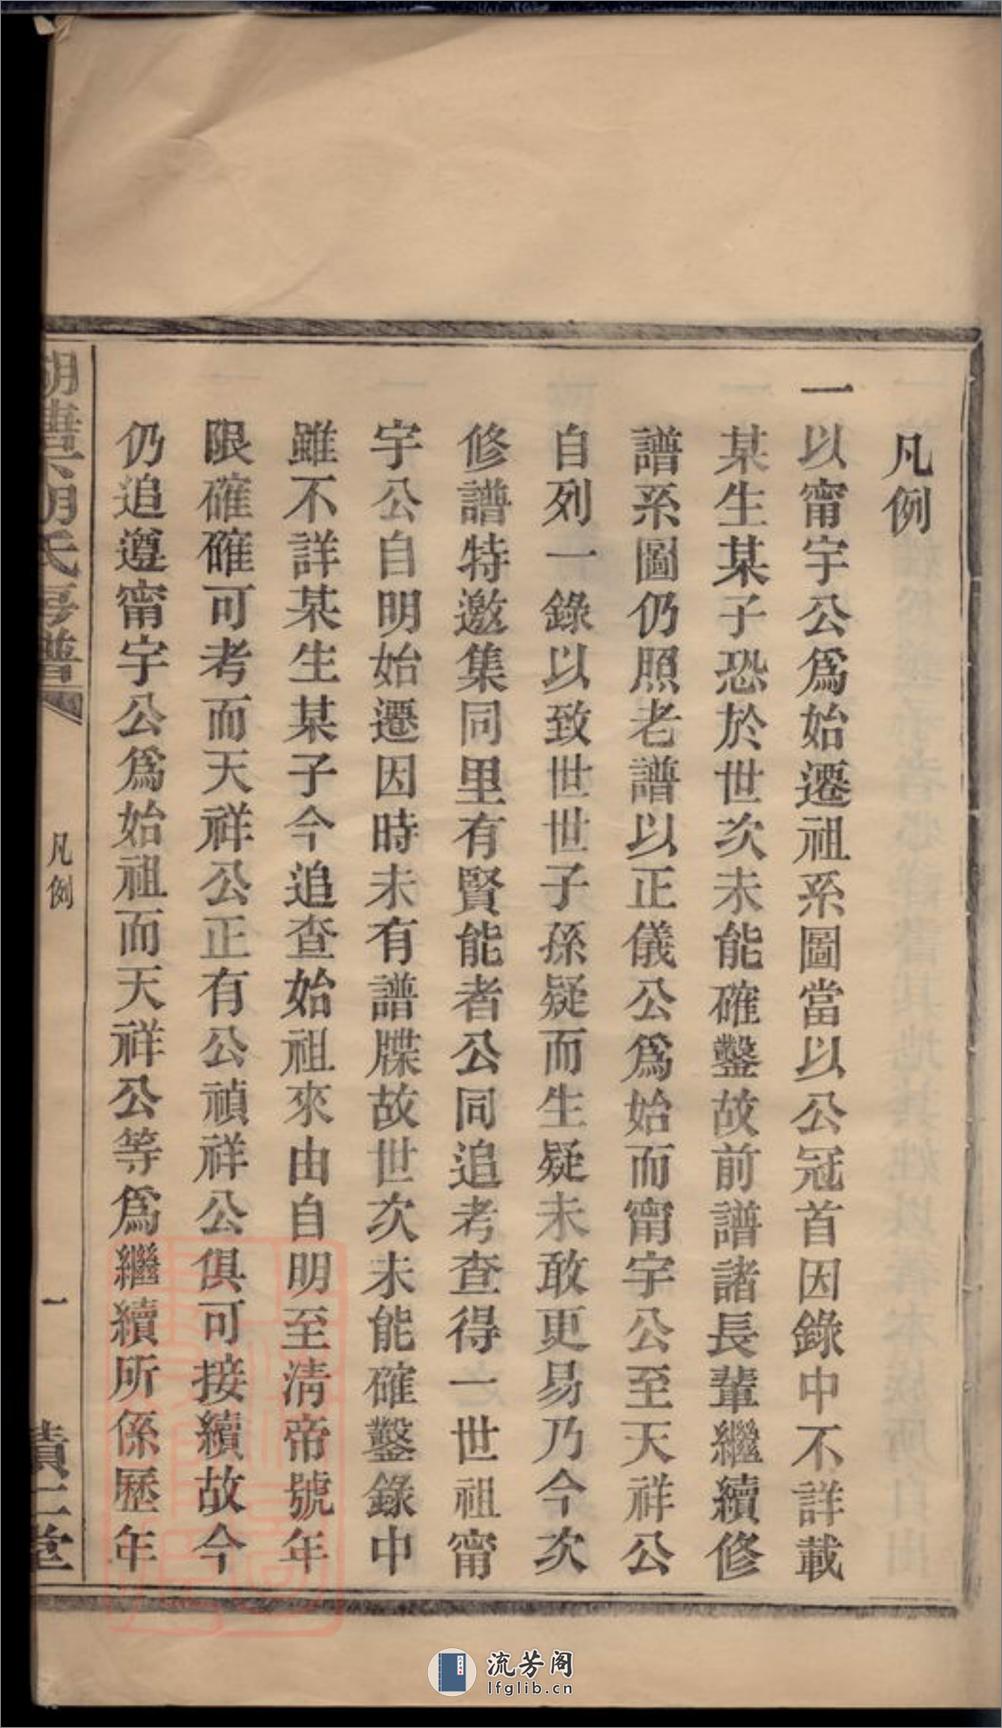 凡例
一以甯宇公爲始遷祖系圖當以公冠首因錄中不詳載
某生某子恐於世次未能確鑿故前譜諸長輩繼續修
譜系圖仍照老譜以正儀公爲始而甯宇公至天祥公
自列一錄以致世世子孫疑而生疑未敢更易乃今次
修譜特邀集同里有賢能者公同追考查得一世祖甯
宇公自明始遷因時未有譜牒故世次未能確鑿錄中
雖不詳某生某子今追查始祖來由自明至清帝號年
限確確可考而天祥公正有公禎祥公俱可接續故今
仍追遵甯宇公爲始祖而天祥公等爲繼續所係歷年
胡氏房譜
凡例
一
堂
流芳阁
lfglib.cn